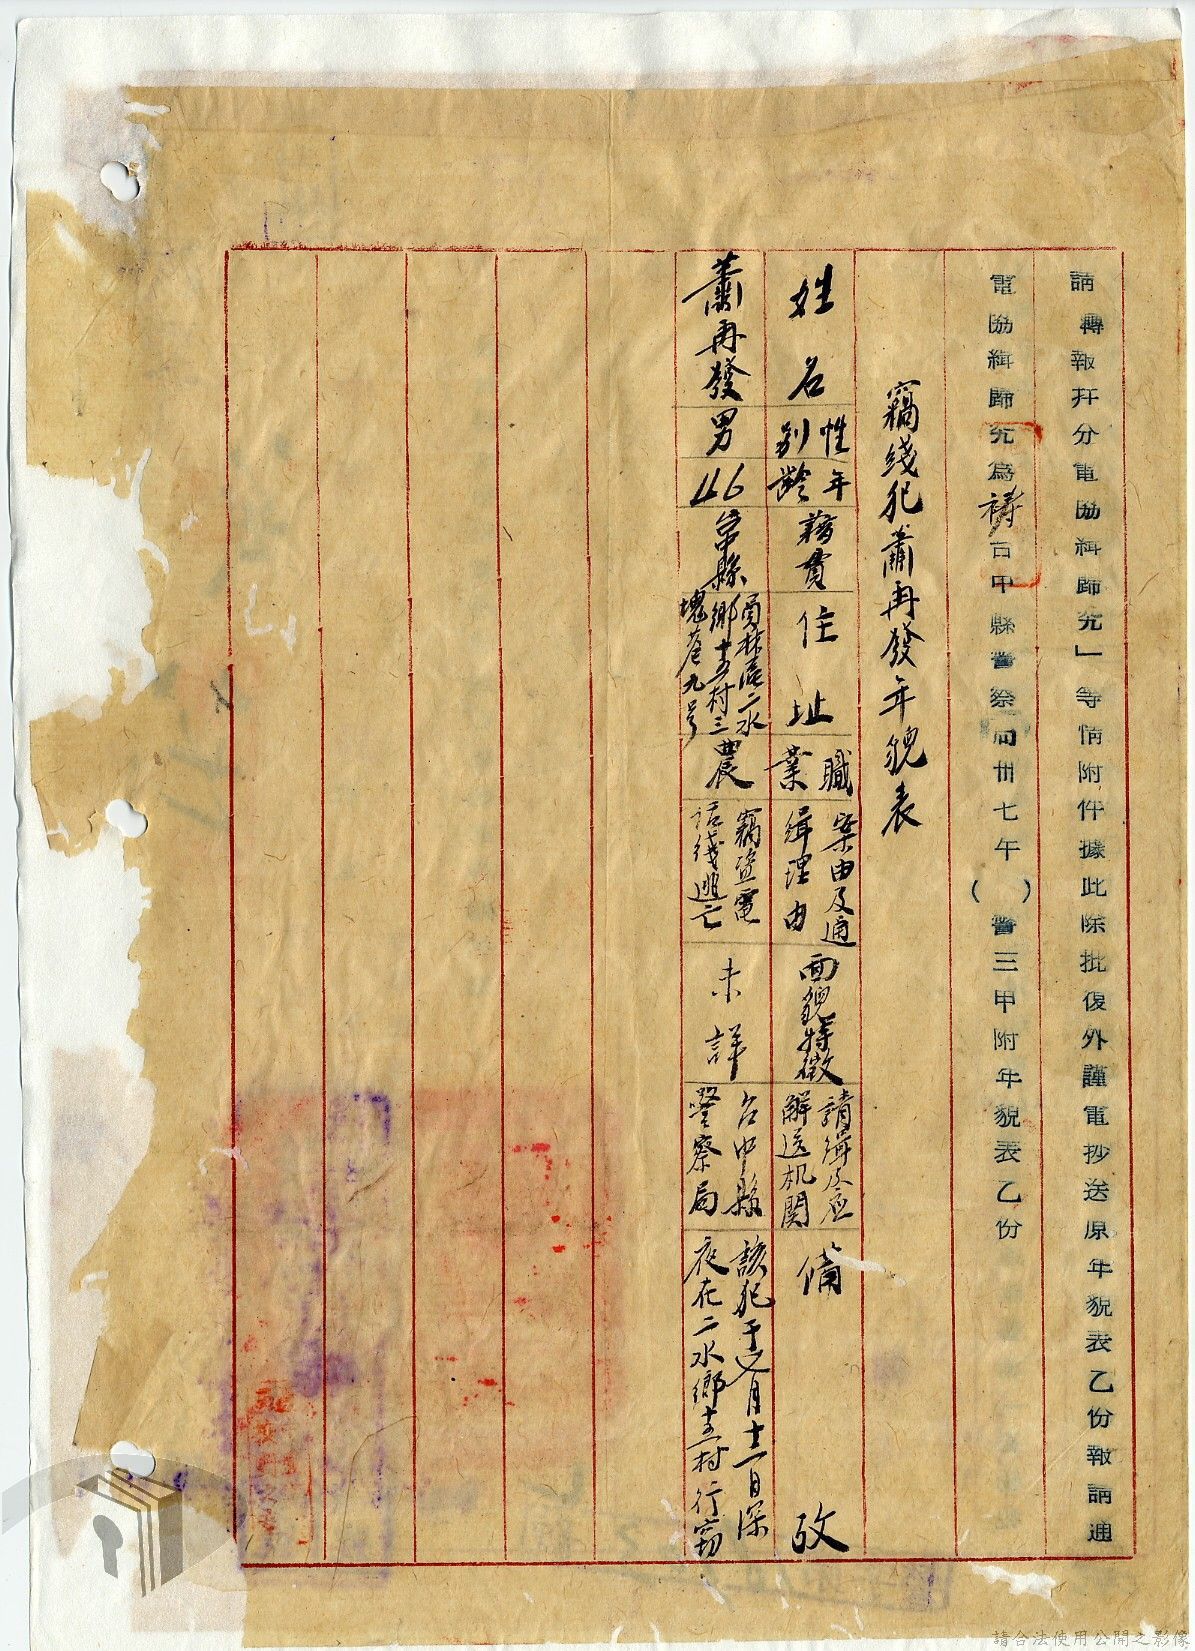 請轉報并分電協緝歸究」等情附件據此除批復外謹電抄送原年貌表乙份報請通
電協緝歸究為禱台中縣警察局卅七午()警三甲附年貌表乙份
竊綫犯蕭再發年貌表
姓名
性別
年齡
籍貫
住址
職業
案由及通緝理由
面貌特徵
請緝及应解送机関
備攷
蕭再發
男
46
台中縣
員林區二水鄉十五村三塊厝九号
農
竊盜電話綫逃亡
未詳
台中縣警察局
該犯于 月十二日深夜在二水鄉十五村行竊
請合法使用公開之影像